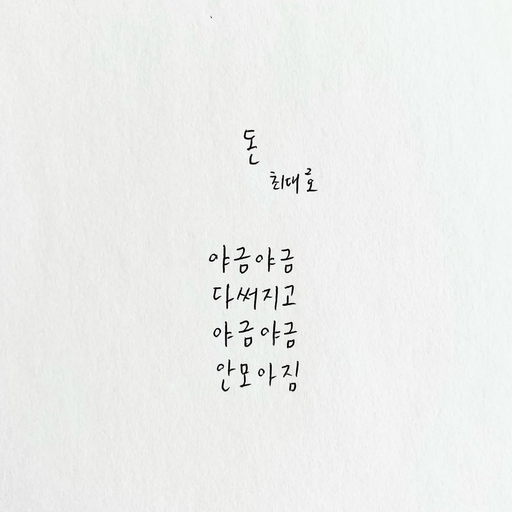 돈
최대호
야금야금
다써지고
야금야금
안모아짐